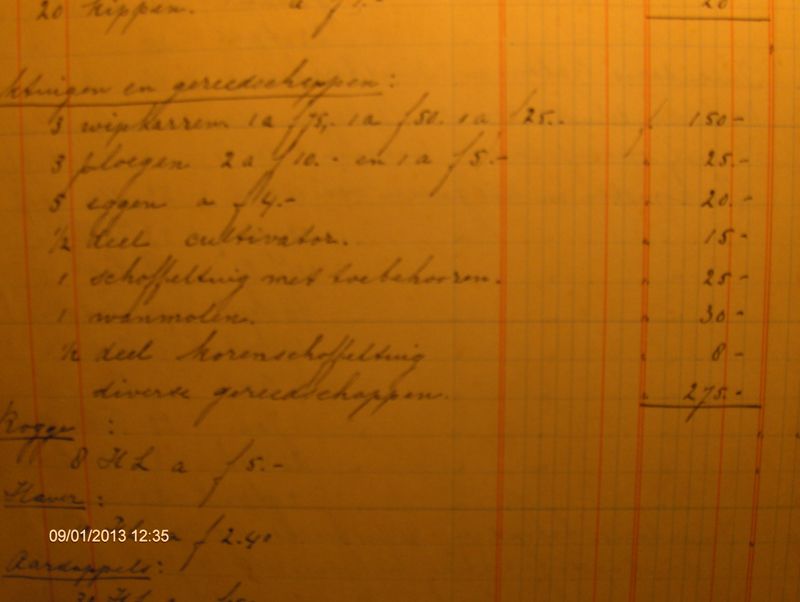 20 kippen. a f 1.- 20
ktuigen en gereedschappen:
3 wipkarren 1 a f 75,- 1 a f 50. 1 a f 25.- f 150-
3 ploegen 2 a f 10.- en 1 a f 5.- " 25.-
5 eggen a f 4.- " 20.-
1/2 deel cultivator. " 15-
1 schoffeltuig met toebehooren. " 25-
1 wanmolen. " 30-
1/2 deel korenschoffeltuig " 8-
diverse gereedschappen. " 275.-
Rogge :
8 HL a f 5.-
Haver :
a f 2.40
09/01/2013 12:35
Aardappels:
HL a